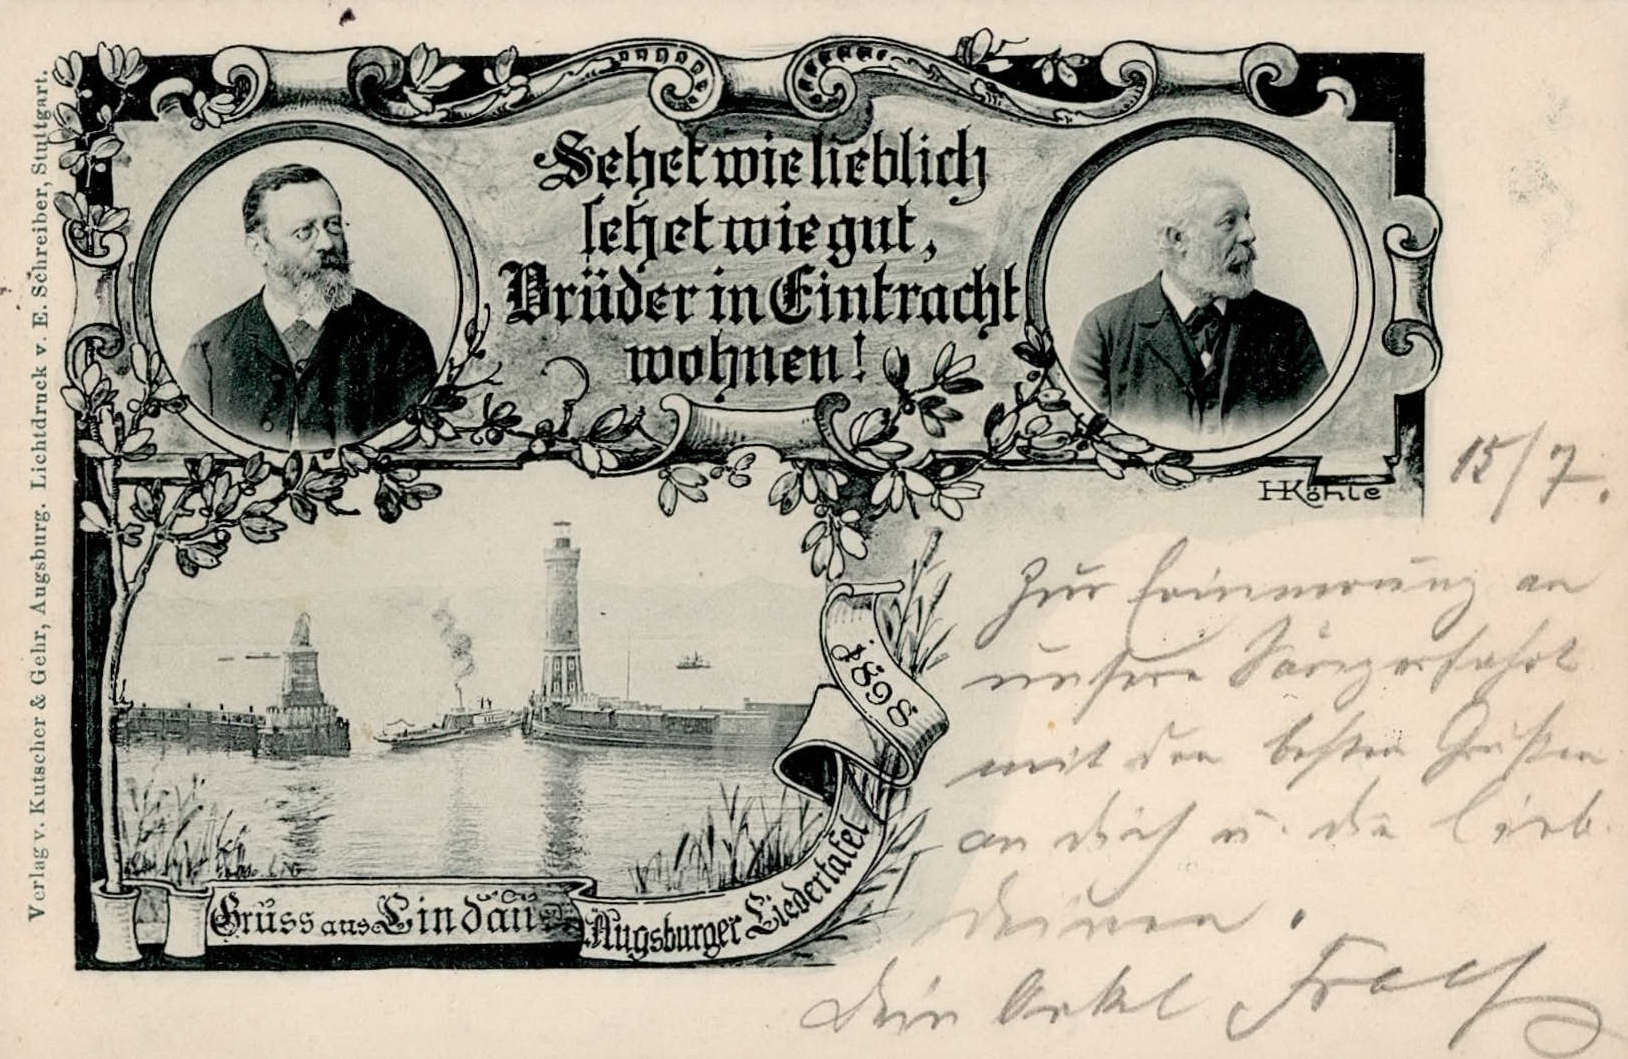 Verlag v. Kutscher & Gehr, Augsburg. Lichtdruck v. E. Schreiber, Stuttgart.
Sehet wie lieblich
sehet wie gut,
Brüder in Eintracht
wohnen!
HKöhle
1898
Gruss aus Lindau
Augsburger Liedertafel
15/7.
Zur Erinnerung an
unsere Sängerfahrt
mit den besten Grüßen
an dich u. die lieb.
deinen.
Dein Onkel